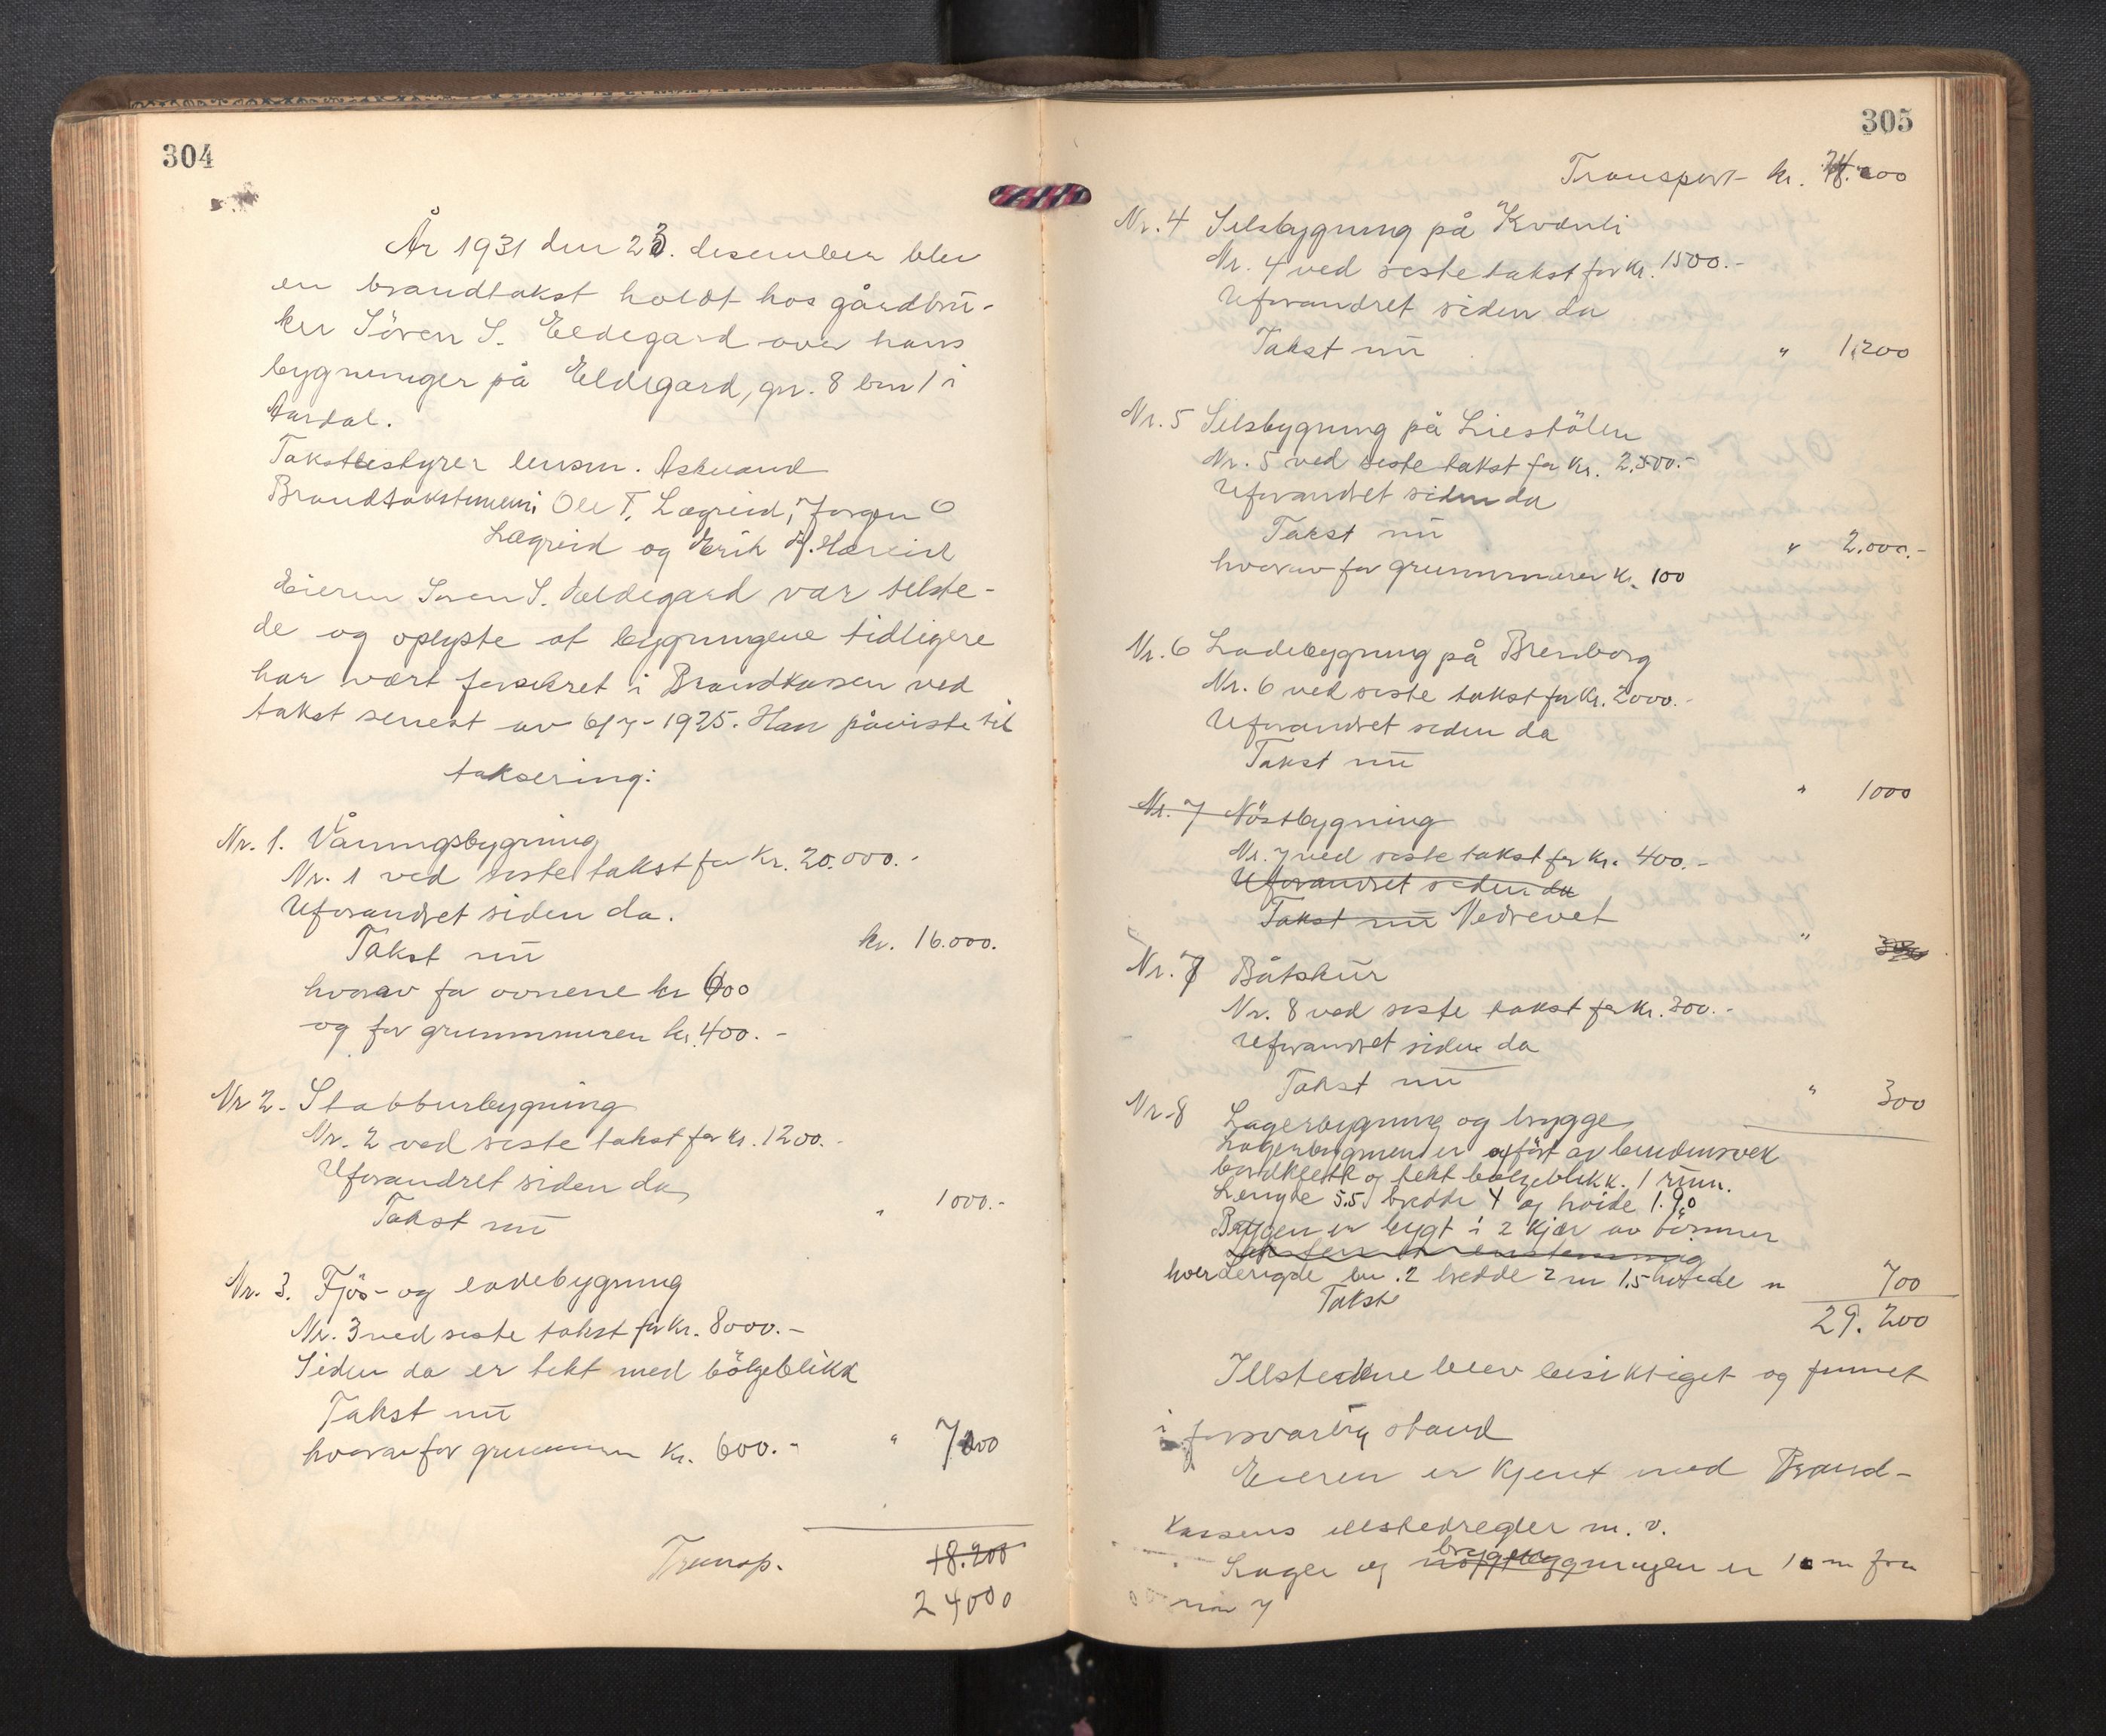 304
År 1931 den 23. desember blev
en brandtakst holdt hos gårdbru-
ker Sören S. Eldegard over hans
bygninger på Eldegard, gn. 8 bn 1 i
Aardal.
Takstbestyrer lensm. Askvand
Brandtakstmenn: Ole T. Lægreid, Jørgen O
Lægreid og Erik H. Hæreid
Eieren Søren S. Eldegard var tilste-
de og oplyste at bygningene tidligere
har vært forsikret i Brandkassen ved
takst senest av 6/7-1925. Han påviste til
taksering:
Nr. 1. Våningsbygning
Nr. 1 ved siste takst for kr. 20.000.-
Uforandret siden da.
Takst nu kr. 16.000.
hvorav for ovnene kr 600
og for grunnmuren kr. 400.-
Nr 2. Stabbursbygning
Nr. 2 ved siste takst for kr. 1200.-
Uforandret siden da,
Takst nu " 1000.-
Nr. 3. Fjös- og ladebygning
Nr. 3 ved siste takst for kr. 8000.-
Siden da er tekt med bölgeblikk
Takst nu
hvorav for grunnmur kr. 600.- " 7000
Transp. 18.200
24000
305
Transport kr. 24.000
Nr. 4 Selsbygning på Kvdnli
Nr. 4 ved siste takst for kr. 1500.-
Uforandret siden da
Takst nu " 1,200
Nr. 5 Selsbygning på Liestölen
Nr. 5 ved siste takst for kr. 2.500.-
Uforandret siden da
Takst nu " 2.000.-
hvorav for grunnmuren kr. 100
Nr. 6 Ladebygning på Brenborg
Nr. 6 ved siste takst for kr. 2000.-
Uforandret siden da
Takst nu " 1000
Nr. 7 Nöstbygning
Nr. 7 ved siste takst for kr. 400.-
Uforandret siden da
Takst nu Nedrevet "
Nr. 7 Båtskur
Nr. 8 ved siste takst for kr. 300.-
Uforandret siden da
Takst nu " 300
Nr. 8 Lagerbygning og brygge
Lagerbygningen er opfört av bindingsverk
bordkledt og tekt bølgeblikk. 1 rum.
Lengde 5.5 bredde 4 og høide 1.90
Bryggen er bygt i 2 kjær av tömmer
hver lengde 2 bredde 2 m 1.5 høide " 700
Takst
29.200
Illstedene blev besiktiget og funnet
i forsvarlig stand
Eieren er kjent med Brand-
kassens illstedregler m. v.
bryggen
Lager og bygningen er 1 m fra
nr 7